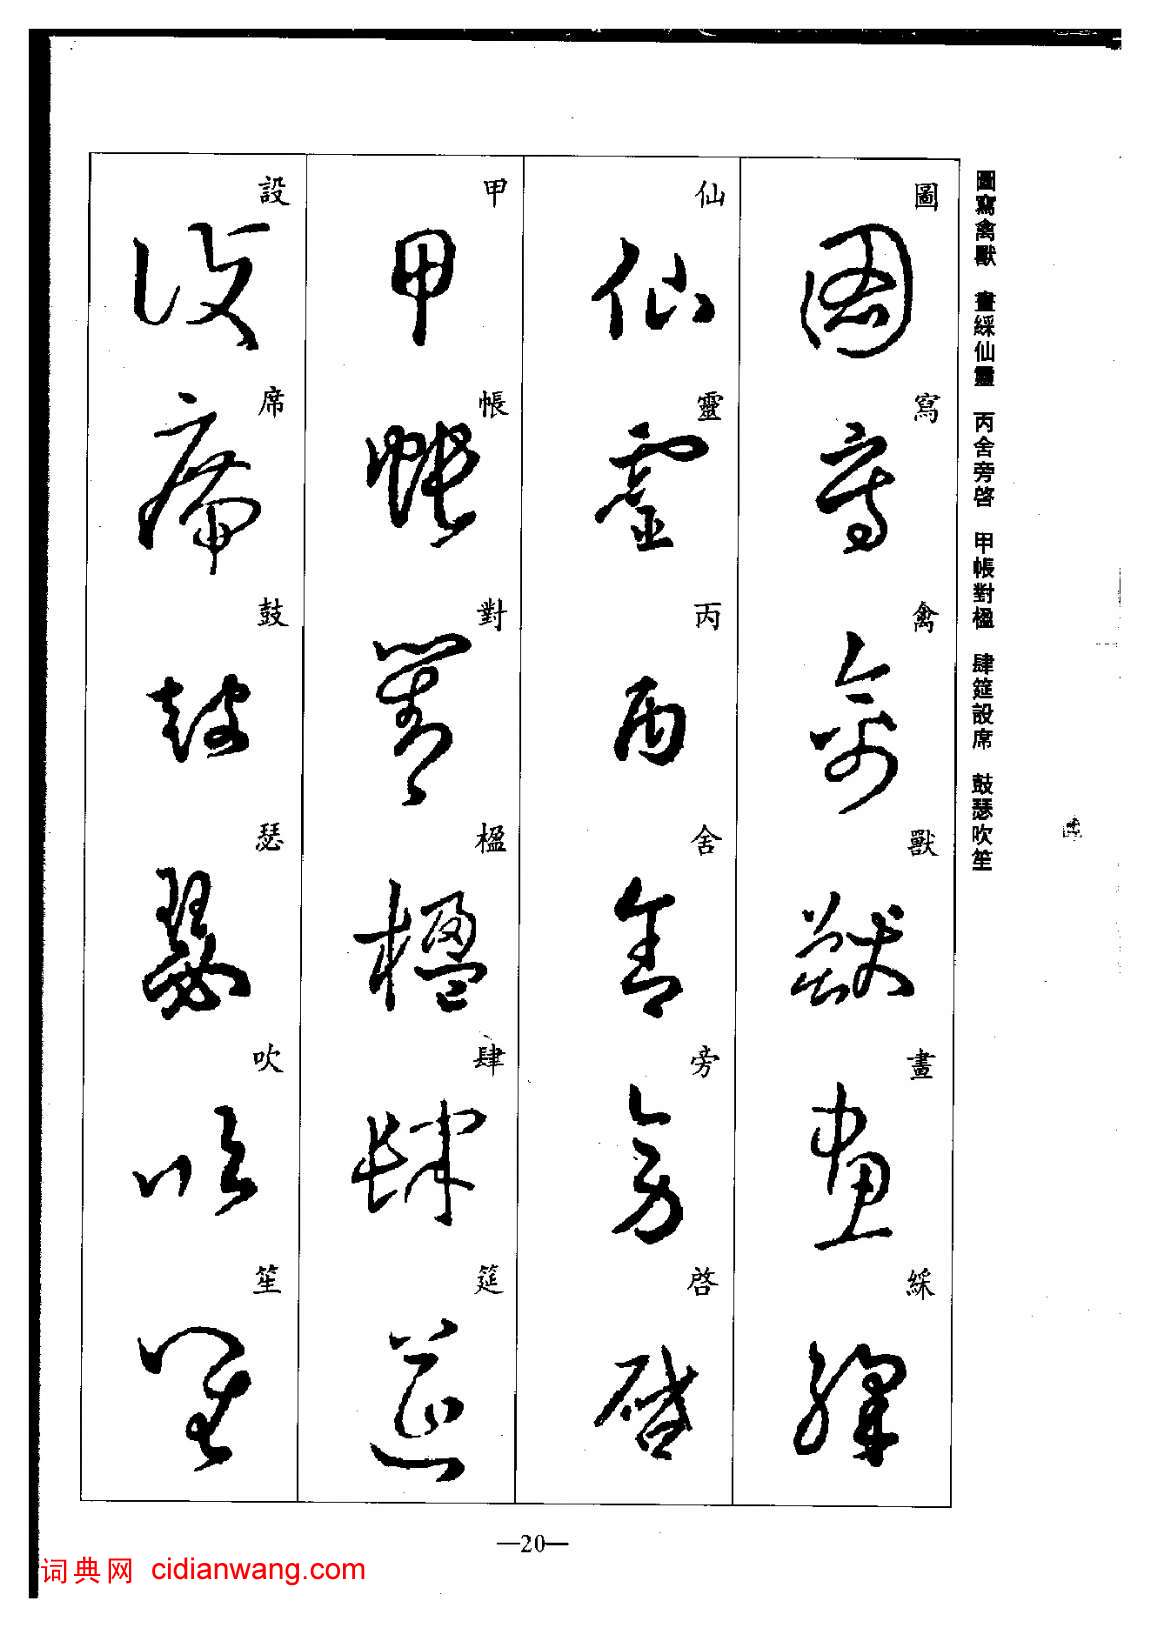 圖寫禽獸 畫綵仙靈 丙舍旁啓 甲帳對楹 肆筵設席 鼓瑟吹笙
圖寫禽獸畫綵
仙靈丙舍旁啓
甲帳對楹肆筵
設席鼓瑟吹笙
—20—
词典网 cidianwang.com